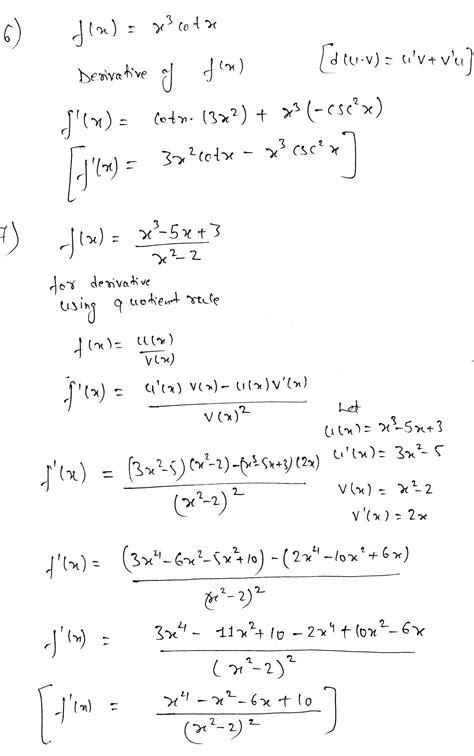 6) f(x) = x³ cotx
Derivative of f(x) [d(u·v) = u'v + v'u]
f'(x) = cotx·(3x²) + x³(-csc²x)
[f'(x) = 3x²cotx - x³ csc²x]
7) f(x) = (x³-5x+3)/(x²-2)
for derivative
using quotient rule
f(x) = u(x)/v(x)
f'(x) = (u'(x) v(x) - u(x) v'(x))/v(x)²
Let
u(x) = x³-5x+3
u'(x) = 3x²-5
v(x) = x²-2
v'(x) = 2x
f'(x) = ((3x²-5)(x²-2)-(x³-5x+3)(2x))/(x²-2)²
f'(x) = ((3x⁴-6x²-5x²+10)-(2x⁴-10x²+6x))/(x²-2)²
f'(x) = (3x⁴-11x²+10-2x⁴+10x²-6x)/(x²-2)²
[f'(x) = (x⁴-x²-6x+10)/(x²-2)²]